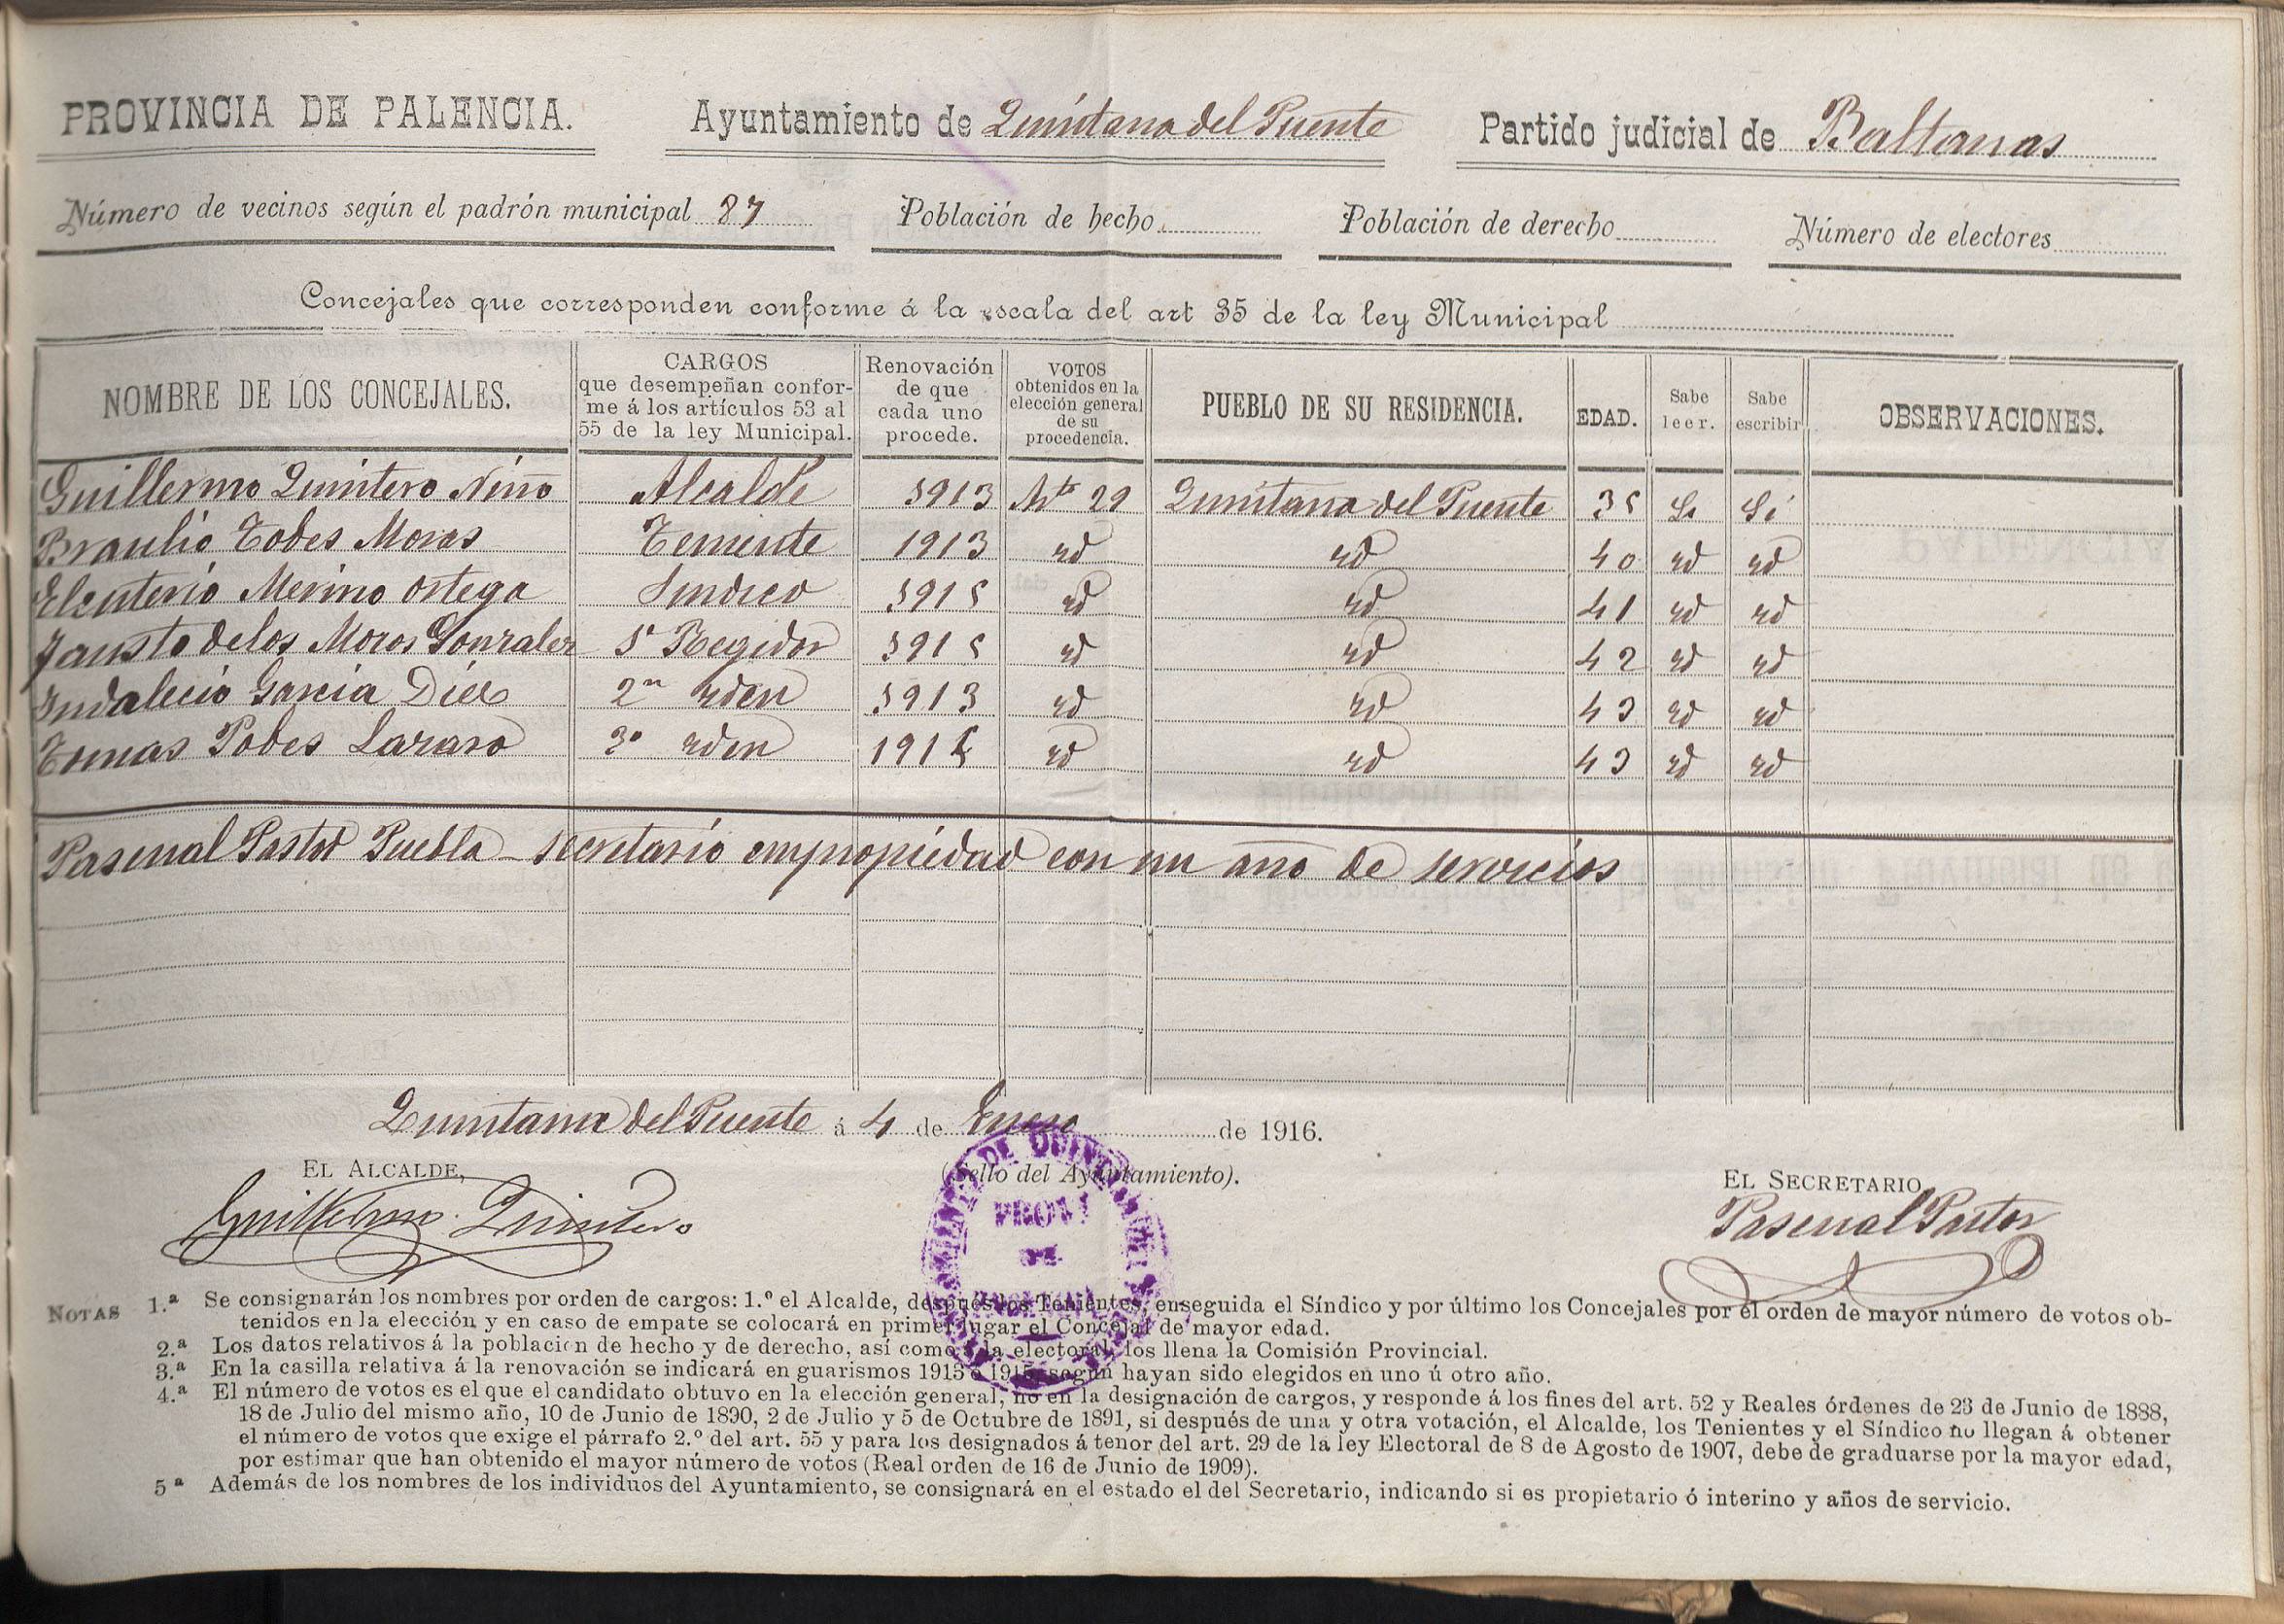 PROVINCIA DE PALENCIA. Ayuntamiento de Quintana del Puente Partido judicial de Baltanas
Número de vecinos según el padrón municipal 87 Población de hecho Población de derecho Número de electores
Concejales que corresponden conforme á la escala del art 35 de la ley Municipal
NOMBRE DE LOS CONCEJALES. CARGOS que desempeñan conforme á los artículos 53 al 55 de la ley Municipal. Renovación de que cada uno procede. VOTOS obtenidos en la elección general de su procedencia. PUEBLO DE SU RESIDENCIA. EDAD. Sabe leer. Sabe escribir OBSERVACIONES.
Guillermo Quintero Niño Alcalde 1913 29 Quintana del Puente 35 Si Si
Braulio Tobes Moras Teniente 1913 id id 40 id id
Eleuterio Merino Ortega Sindico 1915 id id 41 id id
Fausto de los Moros Gonzalez 1º Regidor 1915 id id 42 id id
Indalecio Garcia Diez 2º iden 1913 id id 43 id id
Tomas Pobes Lazaro 3º iden 1915 id id 43 id id
Pascual Pastor Puebla - secretario en propiedad con un año de servicios
Quintana del Puente á 4 de Enero de 1916.
EL ALCALDE, (Sello del Ayuntamiento). EL SECRETARIO,
Guillermo Quintero Pascual Pastor
PROV.
DE
NOTAS 1.ª Se consignarán los nombres por orden de cargos: 1.º el Alcalde, después los Tenientes, enseguida el Síndico y por último los Concejales por el orden de mayor número de votos ob-
tenidos en la elección y en caso de empate se colocará en primer lugar el Concejal de mayor edad.
2.ª Los datos relativos á la población de hecho y de derecho, así como á la electoral, los llena la Comisión Provincial.
3.ª En la casilla relativa á la renovación se indicará en guarismos 1913 ó 1915, según hayan sido elegidos en uno ú otro año.
4.ª El número de votos es el que el candidato obtuvo en la elección general, no en la designación de cargos, y responde á los fines del art. 52 y Reales órdenes de 23 de Junio de 1888,
18 de Julio del mismo año, 10 de Junio de 1890, 2 de Julio y 5 de Octubre de 1891, si después de una y otra votación, el Alcalde, los Tenientes y el Síndico no llegan á obtener
el número de votos que exige el párrafo 2.º del art. 55 y para los designados á tenor del art. 29 de la ley Electoral de 8 de Agosto de 1907, debe de graduarse por la mayor edad,
por estimar que han obtenido el mayor número de votos (Real orden de 16 de Junio de 1909).
5ª Además de los nombres de los individuos del Ayuntamiento, se consignará en el estado el del Secretario, indicando si es propietario ó interino y años de servicio.